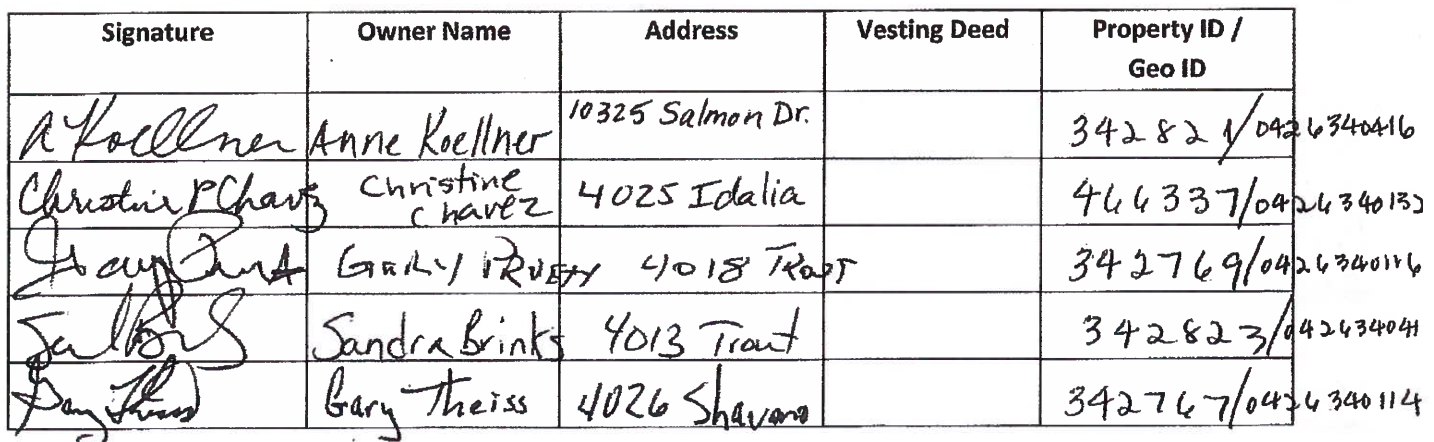 Signature Owner Name Address Vesting Deed Property ID /
Geo ID
A Koellner Anne Koellner 10325 Salmon Dr. 342821/0426340416
Christine P Chavez Christine
Chavez 4025 Idalia 466337/0426340132
Gary Pruett 4018 Trout 342769/0426340116
Sandra Brinks 4013 Trout 342823/042634041
Gary Theiss Gary Theiss 4026 Shavano 342767/0426340114